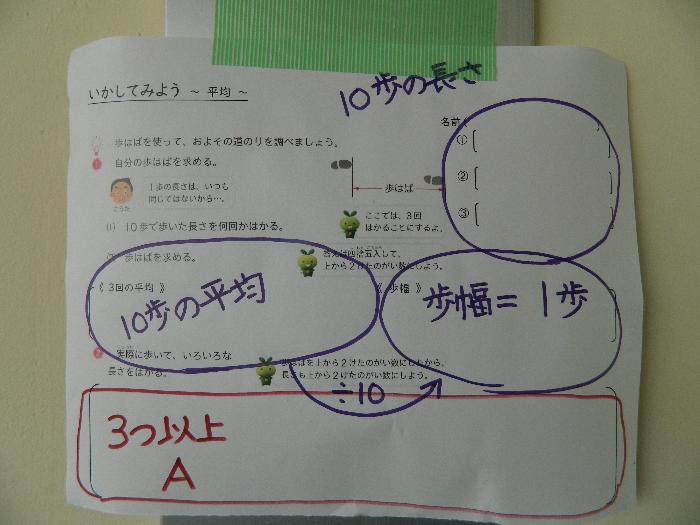 いかしてみよう ～ 平均 ～
10歩の長さ
名前(
歩はばを使って、およその道のりを調べましょう。
1 自分の歩はばを求める。
1歩の長さは、いつも
同じではないから…。
こうた
歩はば
①
②
③
ここでは、3回
はかることにするよ。
(1) 10歩で歩いた長さを何回かはかる。
(2) 歩はばを求める。
答えは四捨五入して、
上から2けたのがい数にしよう。
《 3回の平均 》
《 歩幅 》
10歩の平均
歩幅= 1歩
2 実際に歩いて、いろいろな
長さをはかる。
歩はばを上から2けたのがい数にしたから、
長さも上から2けたのがい数にしよう。
÷10
3つ以上
A